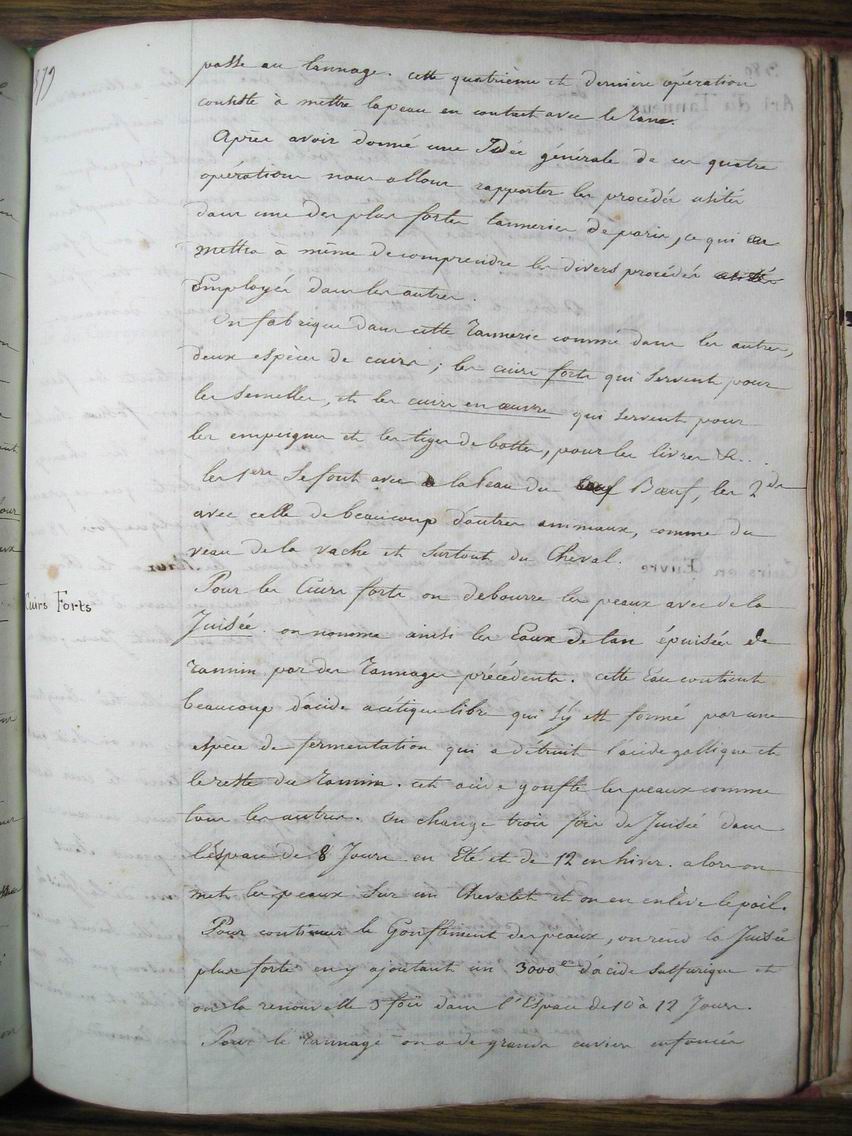 379
passe au tannage. cette quatrième et dernière opération
consiste à mettre la peau en contact avec le Tan.
Après avoir donné une Idée générale de ces quatre
opérations nous allons rapporter les procédés usités
dans une des plus fortes tanneries de paris, ce qui
mettra à même de comprendre les divers procédés usités
Employés dans les autres.
On fabrique dans cette Tannerie comme dans les autres,
deux espèces de cuirs ; les cuirs forts qui servent pour
les semelles, et les cuirs en œuvre qui servent pour
les empeignes et les tiges de bottes, pour les livres &c.
les 1ers se font avec la Peau du Bœuf, les 2ds
avec celle de beaucoup d'autres animaux, comme du
veau de la vache et surtout du Cheval.
Cuirs Forts
Pour les Cuirs forts on debourre les peaux avec de la
Juisée. on nomme ainsi les Eaux de tan épuisées de
Tannin par des Tannages précédents. cette Eau contient
beaucoup d'acide acétique libre qui s'y est formé par une
espèce de fermentation qui a détruit l'acide gallique et
le reste du Tannin. cet acide gonfle les peaux comme
tous les autres. On change trois fois de Juisée dans
l'espace de 8 Jours en Eté et de 12 en hiver. alors on
met les peaux sur un Chevalet et on en enlève le poil.
Pour continuer le Gonflement des peaux, on rend la Juisée
plus forte en y ajoutant un 3000e d'acide Sulfurique et
on la renouvelle 3 fois dans l'Espace de 10 à 12 Jours.
Pour le Tannage on a de grandes cuviers enfoncés